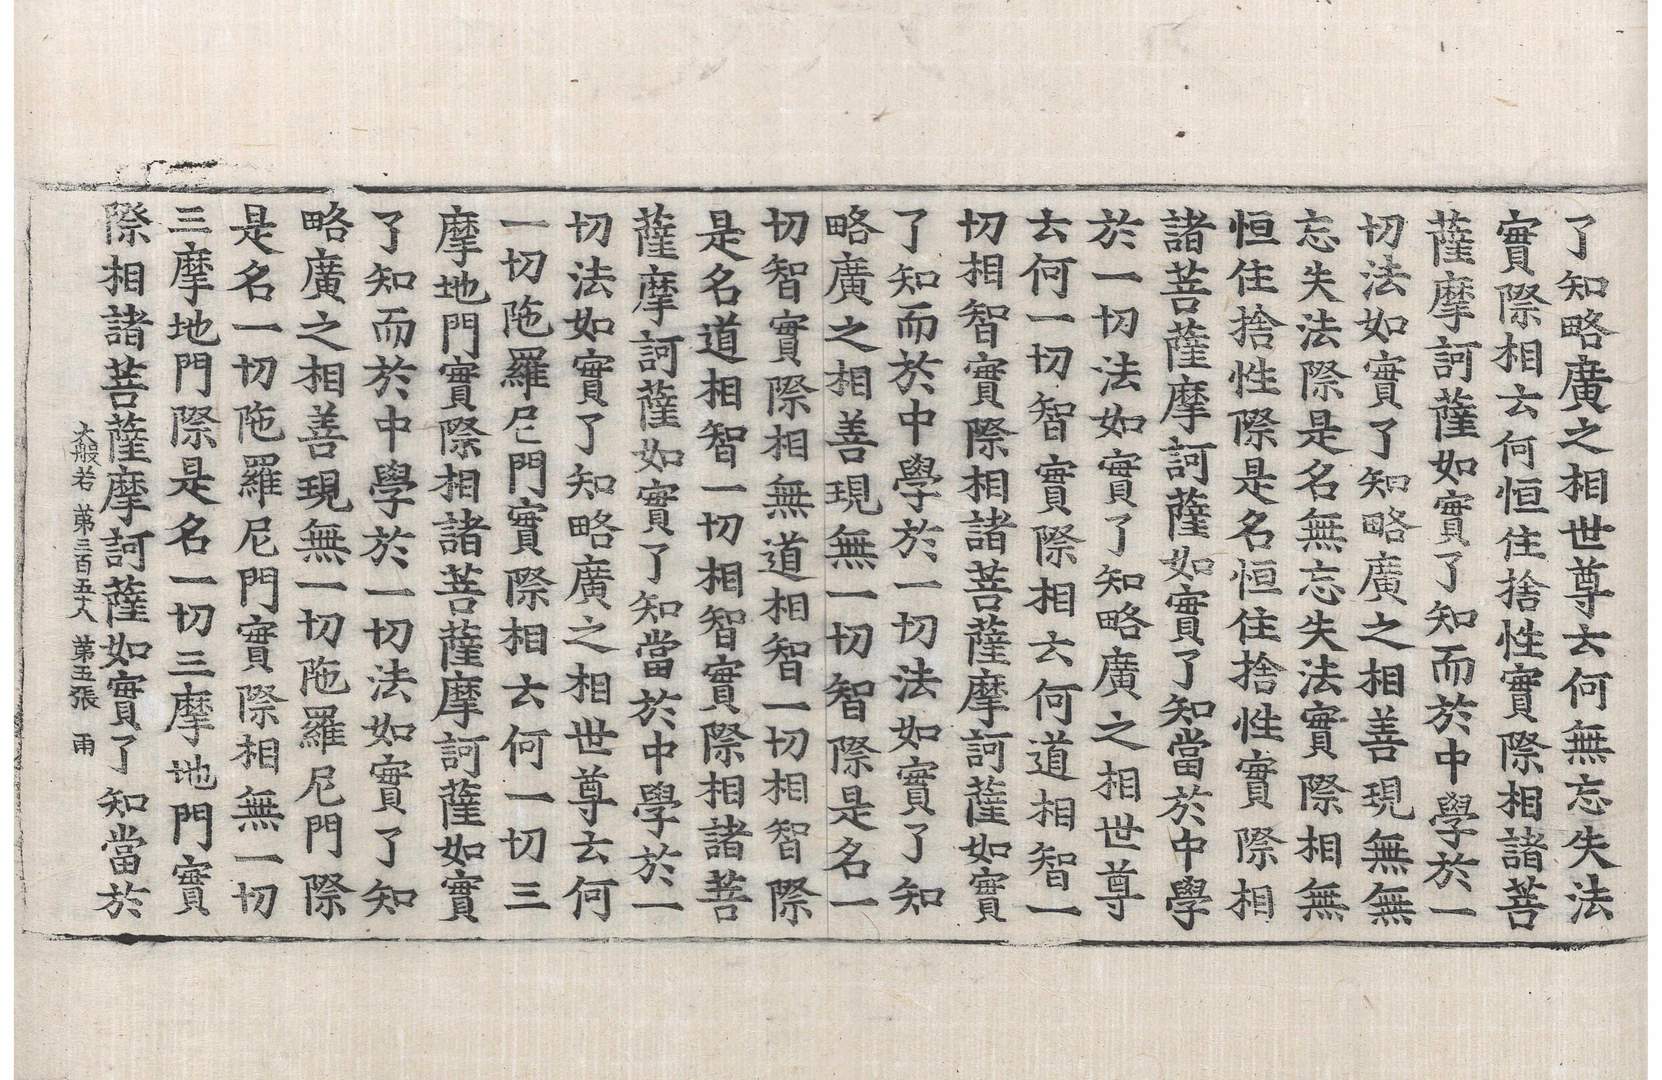 了知略廣之相世尊云何無忘失法
實際相云何恒住捨性實際相諸菩
薩摩訶薩如實了知而於中學於一
切法如實了知略廣之相善現無無
忘失法際是名無忘失法實際相無
恒住捨性際是名恒住捨性實際相
諸菩薩摩訶薩如實了知當於中學
於一切法如實了知略廣之相世尊
云何一切智實際相云何道相智一
切相智實際相諸菩薩摩訶薩如實
了知而於中學於一切法如實了知
略廣之相善現無一切智際是名一
切智實際相無道相智一切相智際
是名道相智一切相智實際相諸菩
薩摩訶薩如實了知當於中學於一
切法如實了知略廣之相世尊云何
一切陁羅尼門實際相云何一切三
摩地門實際相諸菩薩摩訶薩如實
了知而於中學於一切法如實了知
略廣之相善現無一切陁羅尼門際
是名一切陁羅尼門實際相無一切
三摩地門際是名一切三摩地門實
際相諸菩薩摩訶薩如實了知當於
大般若 第三百五十八 第五張 雨